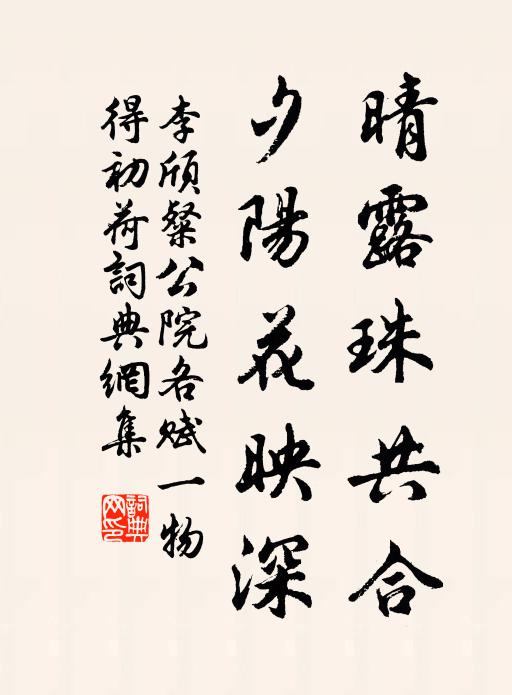 晴露珠共合
夕陽花映深
李頎粲公院各賦一物
得初荷詞典網集
詞典
网印